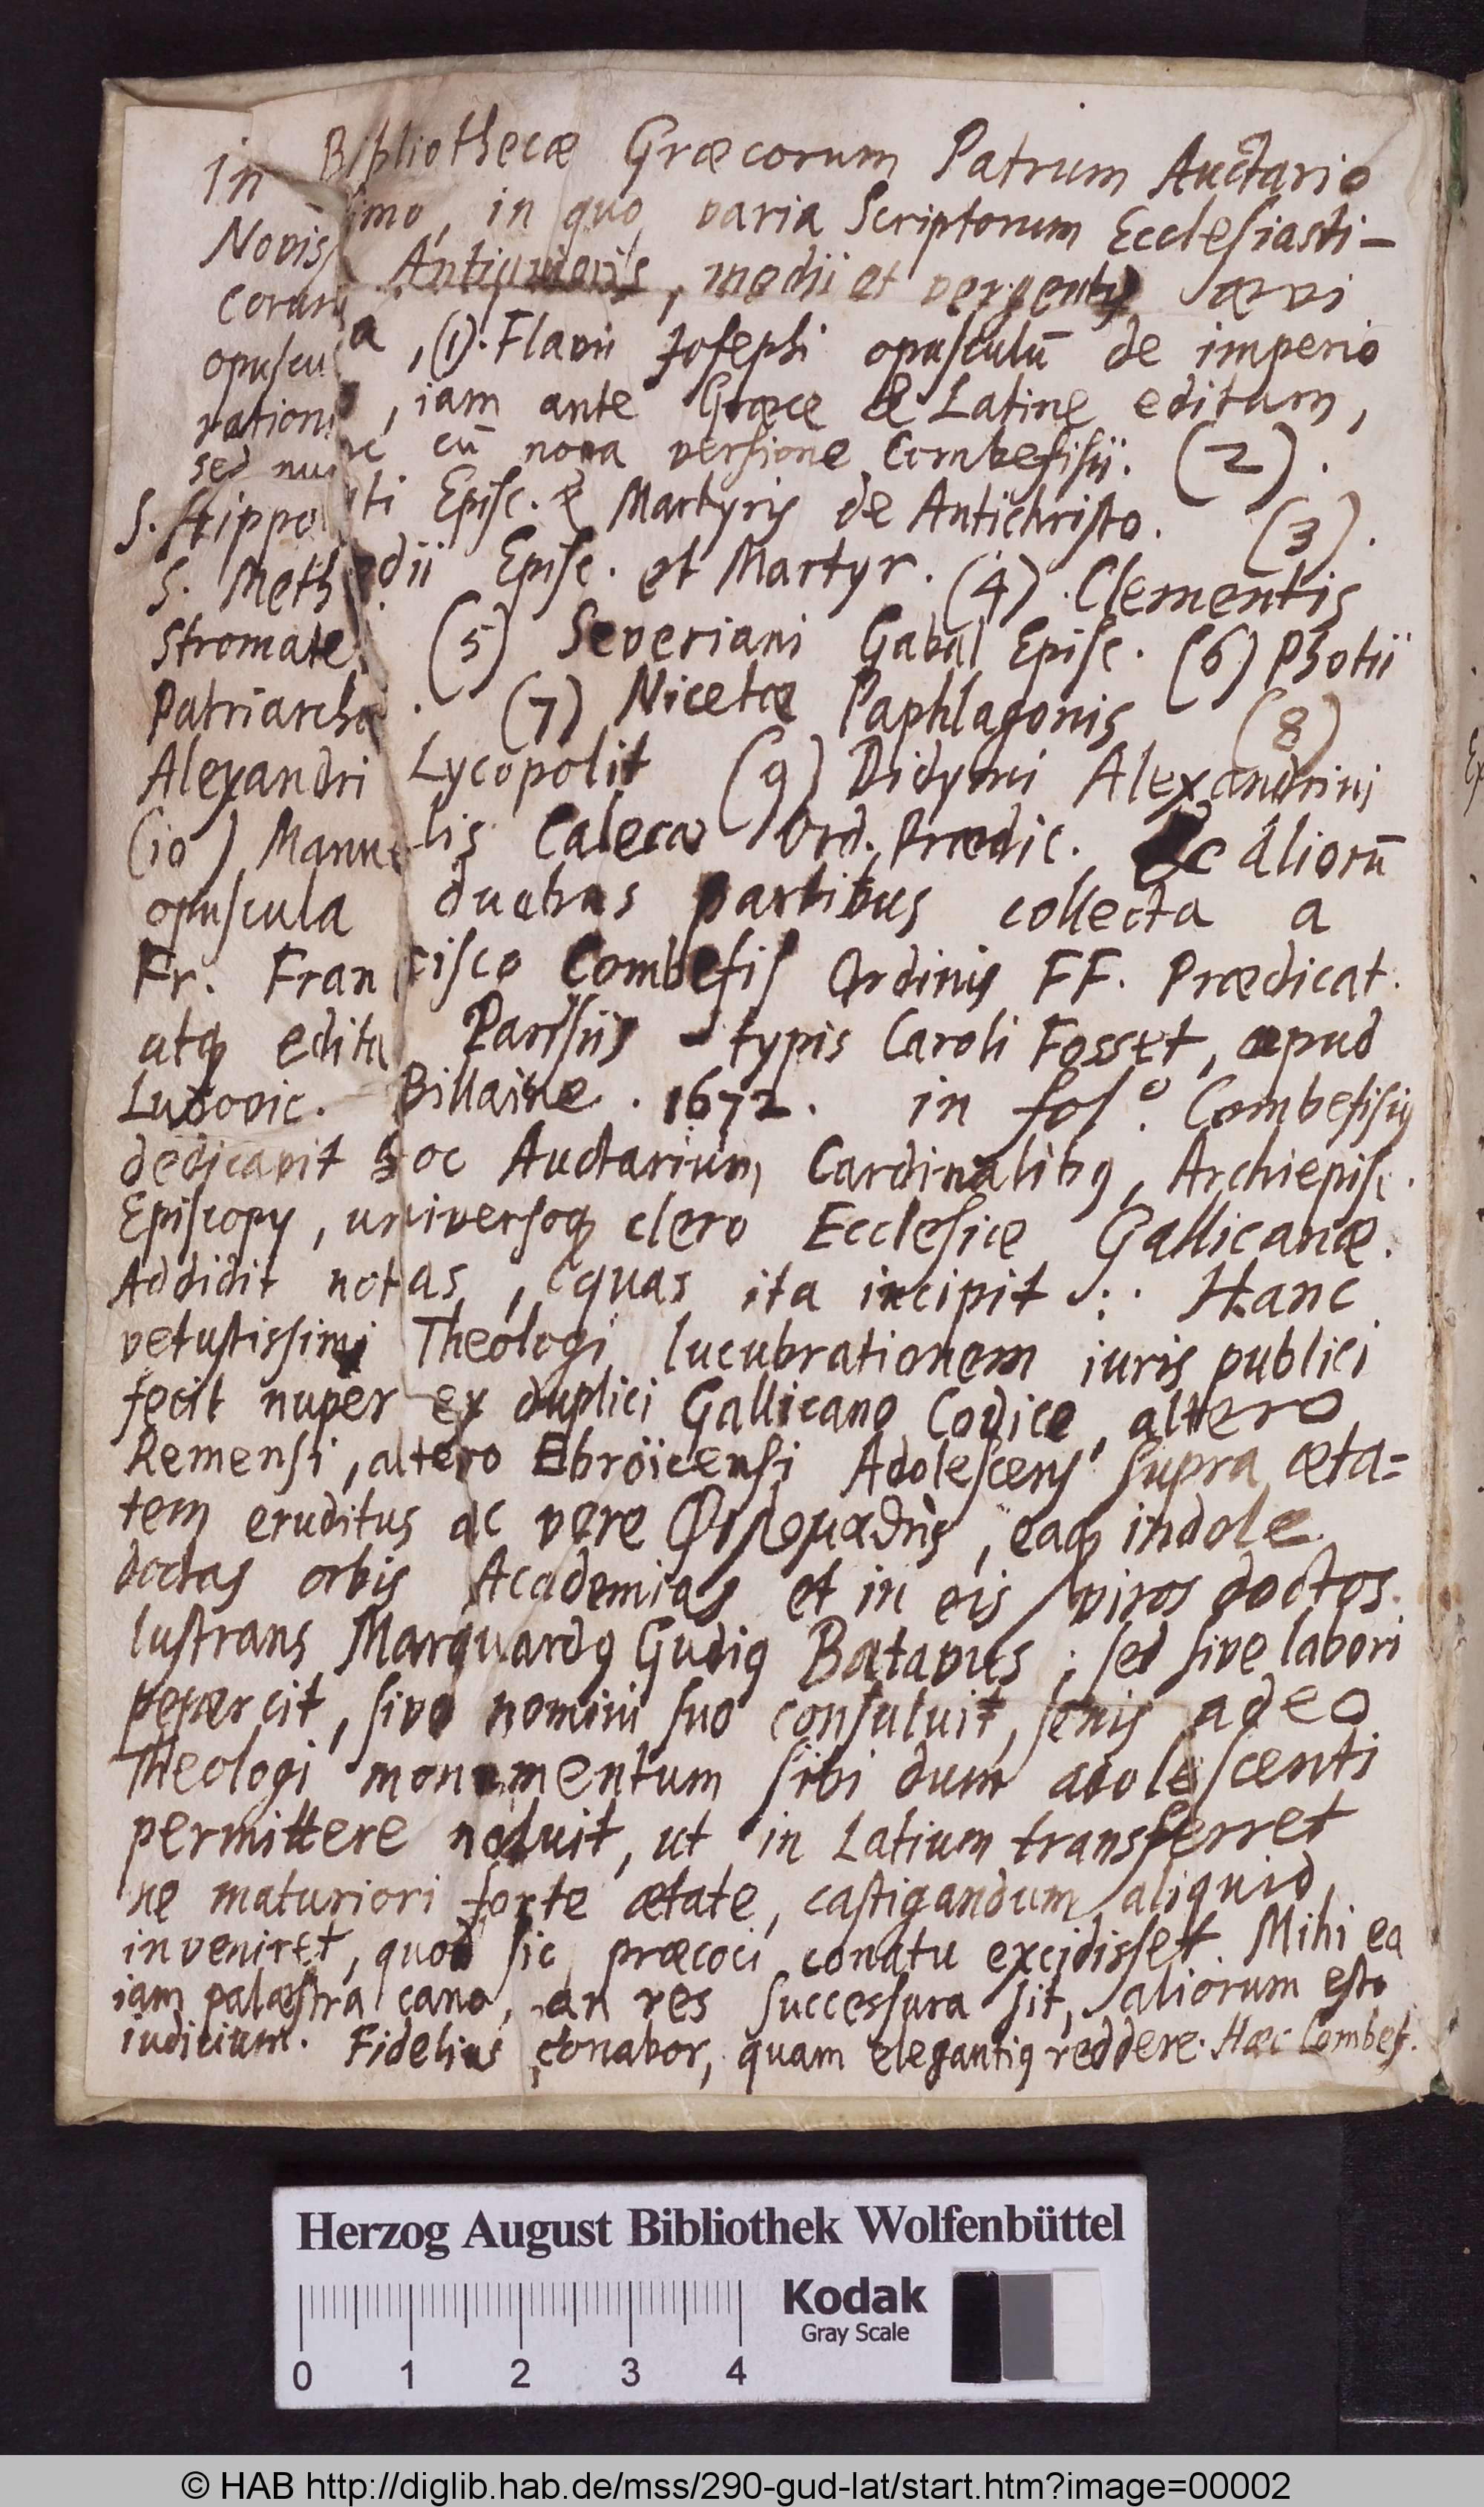 In Bibliothecæ Græcorum Patrum Auctario
Noviss imo, in quo varia Scriptorum Ecclesiasti-
corum Antiquioris, medii et vergentis ævi
opuscula, (1). Flavii Josephi opusculū de imperio
rationis, iam ante Græce & Latine editum,
sed nunc cū nova versione Combefisii. (2).
S. Hippoliti Episc. & Martyris de Antichristo. (3).
S. Methodii Episc. et Martyr. (4) Clementis
Stromate. (5) Severiani Gabal Episc. (6) Photii
Patriarchæ. (7) Nicetæ Paphlagonis (8)
Alexandri Lycopolit (9) Didymi Alexandrini
(10) Manuelis Calecæ Ord. Prædic. Ac aliorū
opuscula duabus partibus collecta a
Fr. Francisco Combefis Ordinis FF. Prædicat.
atq edita Parisiis typis Caroli Fosset, apud
Ludovic. Billaine. 1672. in fol.º Combefisius
dedicavit hoc Auctarium Cardinalibus, Archiepisc.
Episcopis, universoq clero Ecclesiæ Gallicanæ.
Addidit notas, quas ita incipit: Hanc
vetustissimi Theologi lucubrationem iuris publici
fecit nuper ex duplici Gallicano Codice, altero
Remensi, altero Ebroicensi Adolescens supra æta=
tem eruditus ac vere Φιλομαθὴς, eaq indole
doctas orbis Academias et in eis viros doctos
lustrans Marquardus Gudius Batavus; sed sive labori
pepercit, sive nomini suo consuluit, senis adeo
Theologi monumentum sibi dum adolescenti
permittere noluit, ut in Latium transferret
ne maturiori forte ætate, castigandum aliquid
inveniret, quod sic præcoci conatu excidisset. Mihi ea
iam palæstra cano, an res successura sit, aliorum esto
iudicium. Fidelius conabor, quam elegantius reddere. Hæc Combef.
Herzog August Bibliothek Wolfenbüttel
Kodak
Gray Scale
0 1 2 3 4
© HAB http://diglib.hab.de/mss/290-gud-lat/start.htm?image=00002